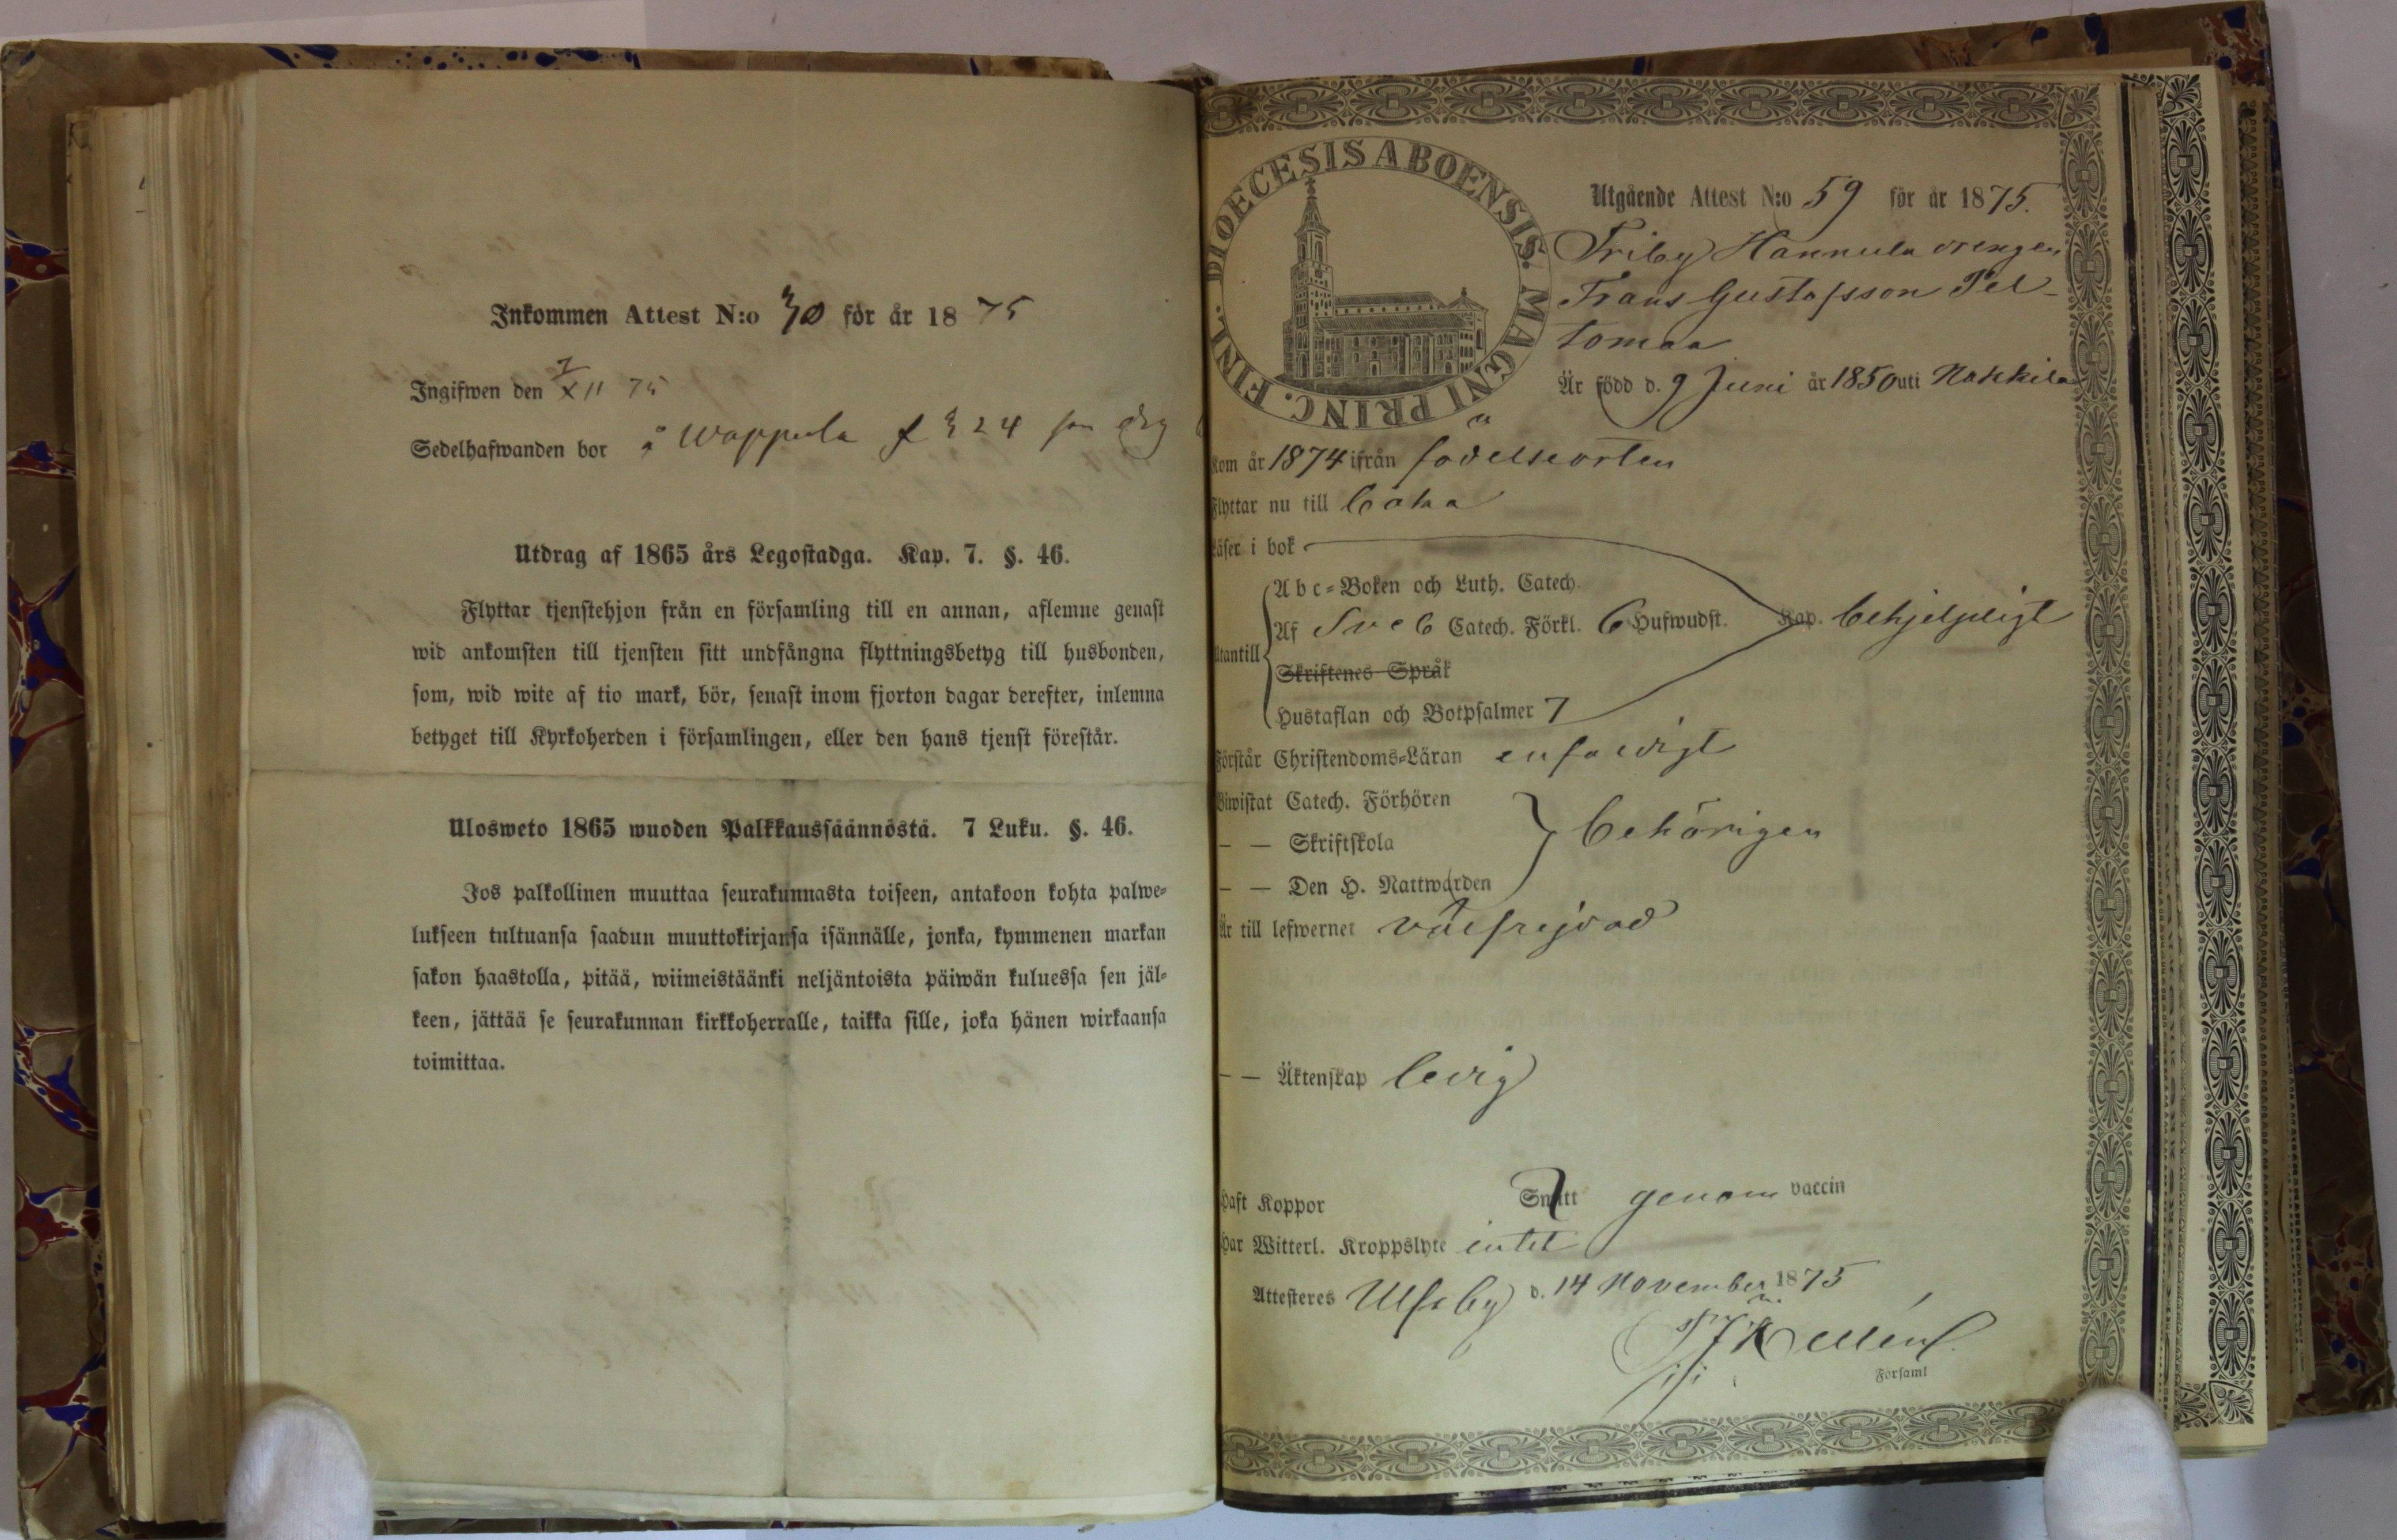 Inkommen Attest N:o 30 för år 1875
Ingifwen den 7/XII 75
Sedelhafwanden bor å Wappula f 324 som drg
Utdrag af 1865 års Legostadga. Kap. 7. §. 46.
Flyttar tjenstehjon från en församling till en annan, aflemne genast
wid ankomsten till tjensten sitt undfångna flyttningsbetyg till husbonden,
som, wid wite af tio mark, bör, senast inom fjorton dagar derefter, inlemna
betyget till Kyrkoherden i församlingen, eller den hans tjenst förestår.
Ulosweto 1865 wuoden Palkkaussäännöstä. 7 Luku. §. 46.
Jos palkollinen muuttaa seurakunnasta toiseen, antakoon kohta palwe-
lukseen tultuansa saadun muuttokirjansa isännälle, jonka, kymmenen markan
sakon haastolla, pitää, wiimeistäänki neljäntoista päiwän kuluessa sen jäl-
keen, jättää se seurakunnan kirkkoherralle, taikka sille, joka hänen wirkaansa
toimittaa.
DIOECESIS ABOENSIS. MAGNI PRINC. FINL.
Utgående Attest N:o 59 för år 1875.
Friby Hannula drengen
Frans Gustafsson Pel-
tomaa
Är född d. 9 Juni år 1850 uti Nakkila
Kom år 1874 ifrån födelseorten
Flyttar nu till
Läser i bok
Abc-Boken och Luth. Catech.
Utantill Af Sveb Catech. Förkl. 6 Hufwudst. Kap. behjelpligt
Skriftenes Språk
Hustaflan och Botpsalmer 7
Förstår Christendoms-Läran enfaldigt
Biwistat Catech. Förhören
— — Skriftskola behörigen
— — Den H. Nattwarden
Är till lefwernet välfrejdad
— — Äktenskap ledig
Haft Koppor Smitt genom vaccin
Har Witterl. Kroppslyte intet
Attesteres Ulfsby d. 14 November 1875
Församl